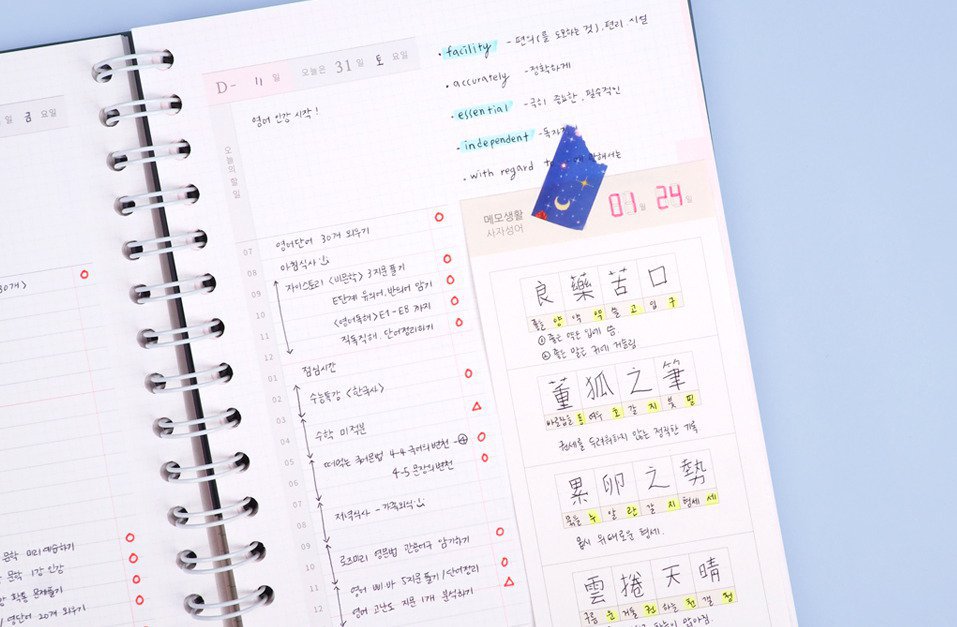 일 금 요일
30개>
문학 미리예습하기
문학 1강 인강
문제풀기
영단어 20개 외우기
D- 11 일 오늘은 31 일 토 요일
오늘의 할 일
영어 인강 시작!
07 영어단어 30개 외우기
08 아침식사
09 자이스토리 <비문학> 3지문 풀기
E단계 유의어, 반의어 암기
10 <영어독해> E1-E8 까지
11 직독직해, 단어정리하기
12
점심시간
01
02 수능특강 <한국사>
03
04 수학 미적분
떠먹는 국어문법 4-4 국어의 변천 - ④
05 4-5 문장의 변천
06
07 저녁식사 - 가족외식
08
09 로즈마리 영문법 관용어구 암기하기
10
11 영어 빠.바 5지문 풀기/단어정리
12 영어 고난도 지문 1개 분석하기
• facility - 편의(를 도모하는 것), 편리, 시설
• accurately - 정확하게
• essential - 극히 중요한, 필수적인
• independent
• with regard to 관해서는
메모생활
사자성어
01 월 24 일
良藥苦口
좋을 양 약 약 쓸 고 입 구
① 좋은 약은 입에 씀.
② 좋은 말은 귀에 거슬림
董狐之筆
바로잡을 동 여우 호 갈 지 붓 필
권세를 두려워하지 않는 정직한 기록
累卵之勢
묶을 누 알 란 갈 지 형세 세
몹시 위태로운 형세.
雲捲天晴
구름 운 거둘 권 하늘 천 갤 청